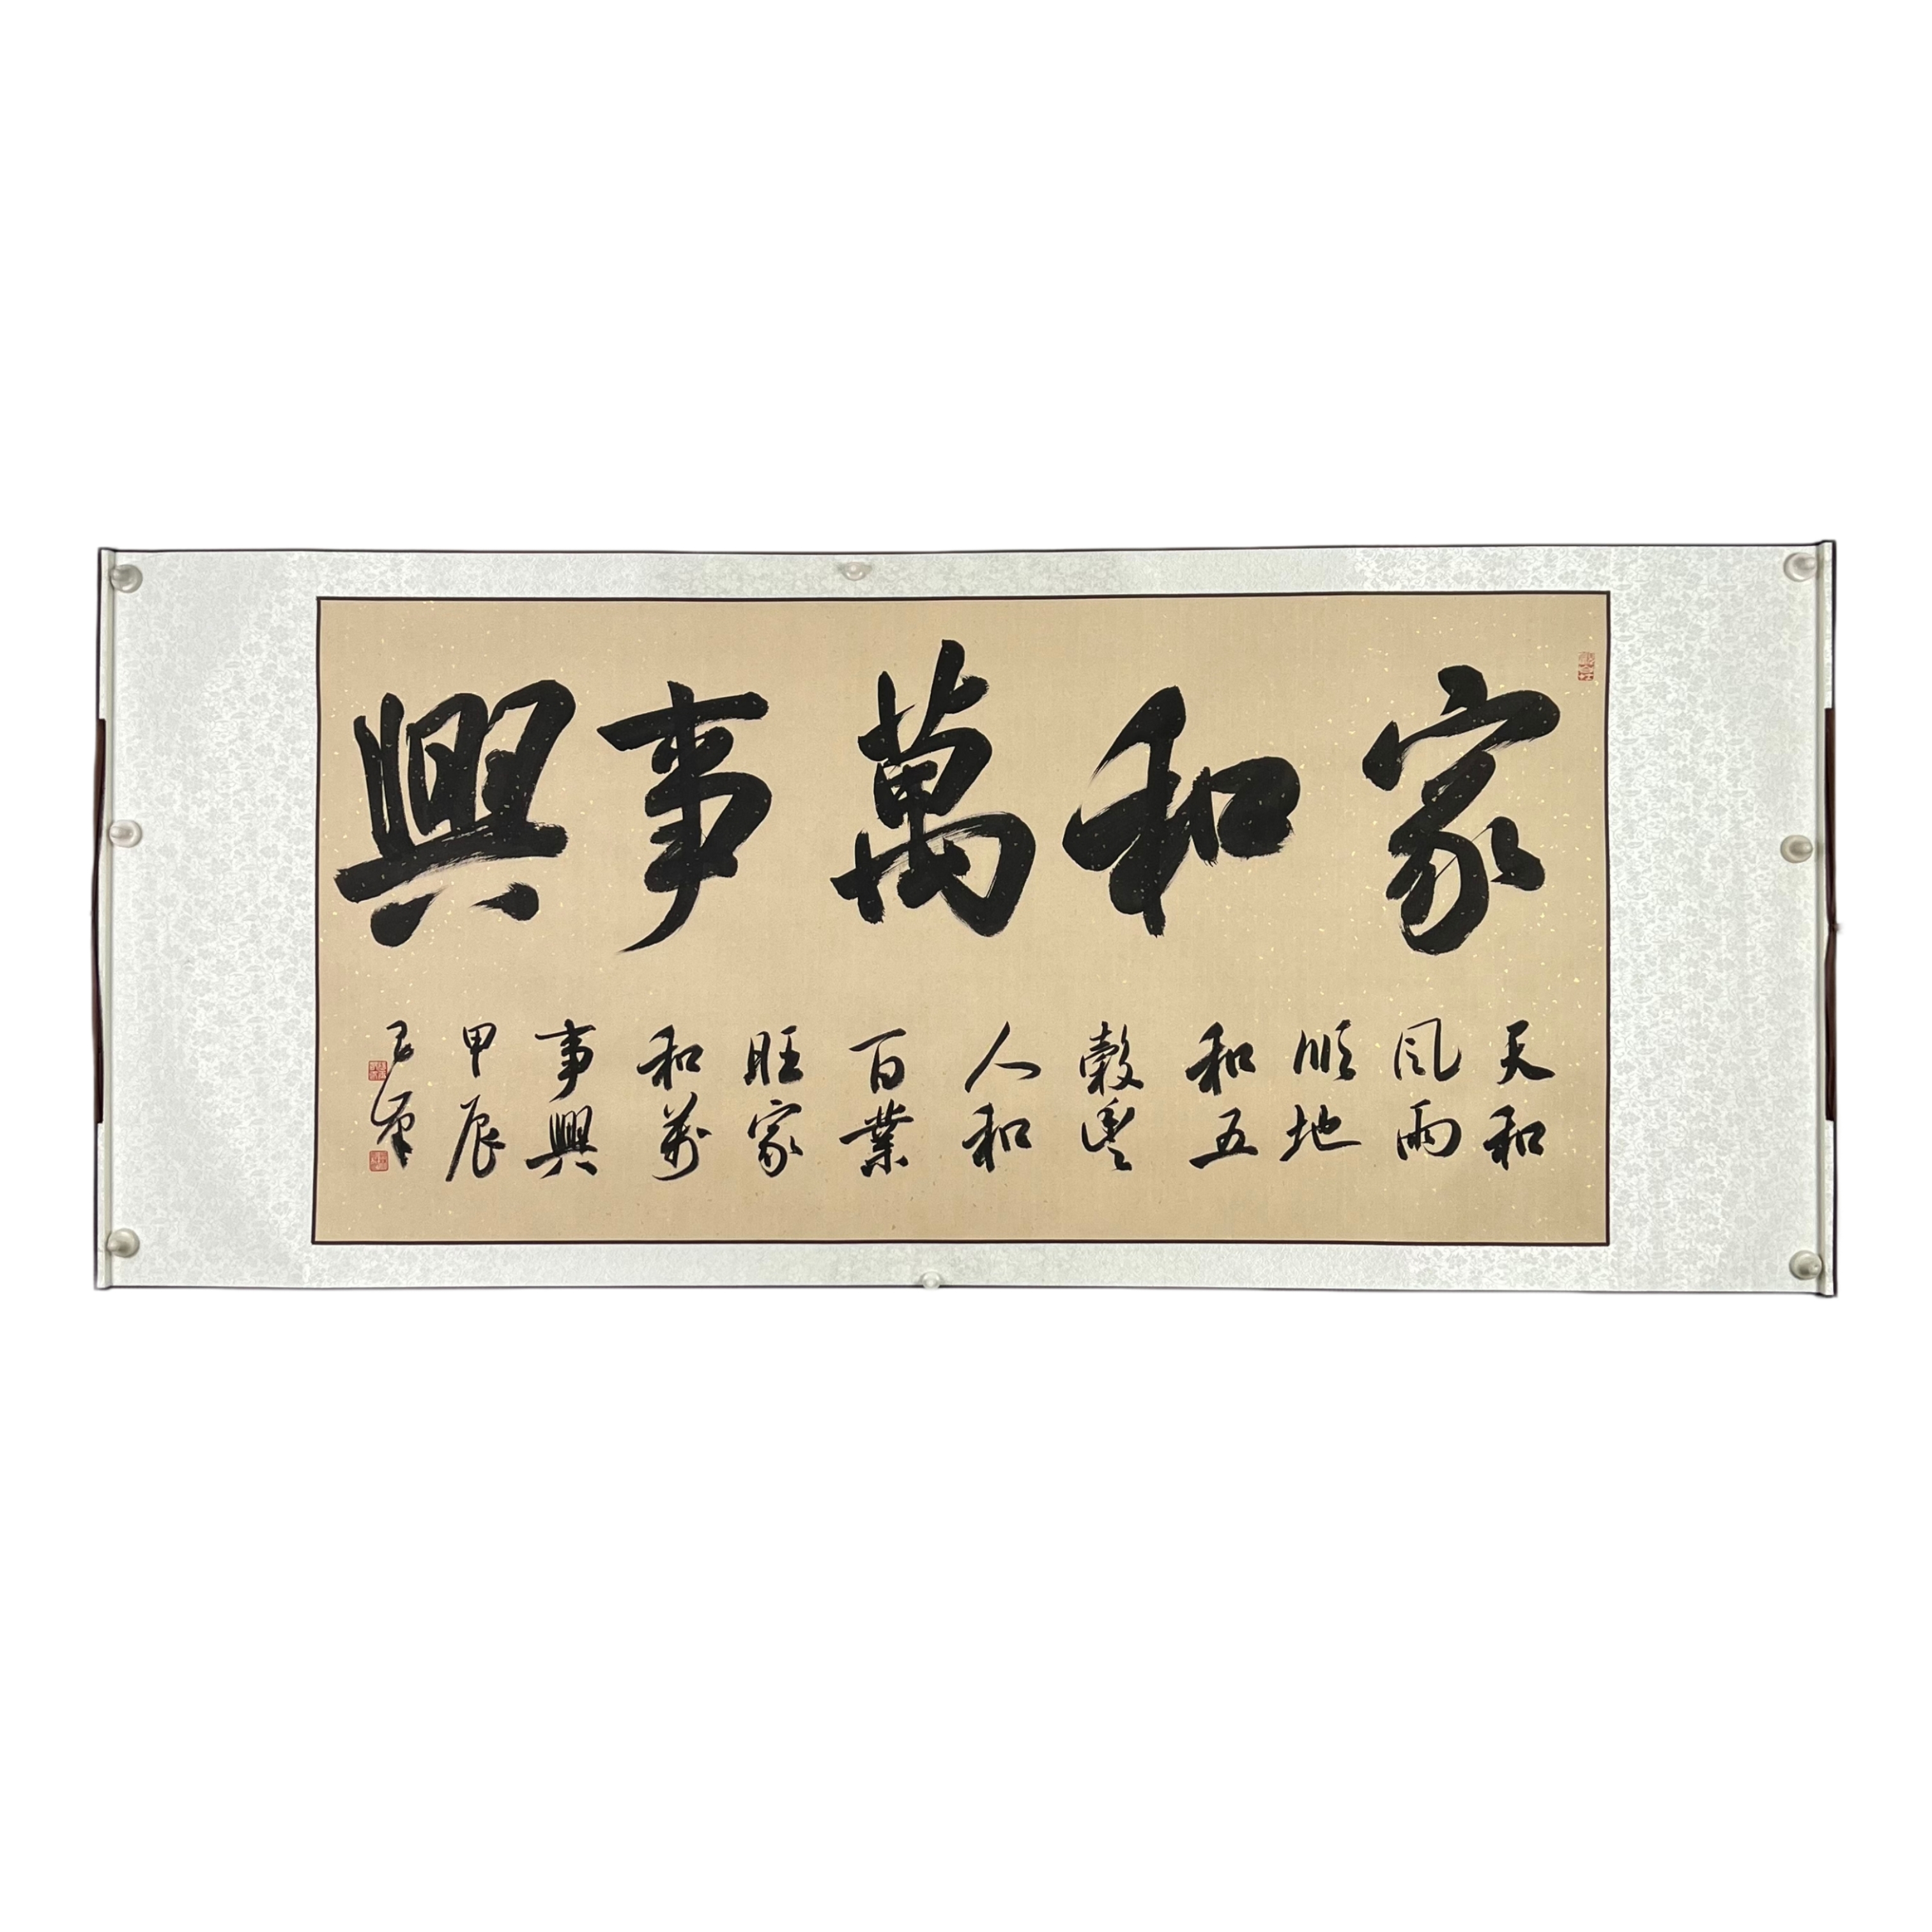 家和萬事興
天和
風雨
順地
和五
穀豐
人和
百業
旺家
和萬
事興
甲辰